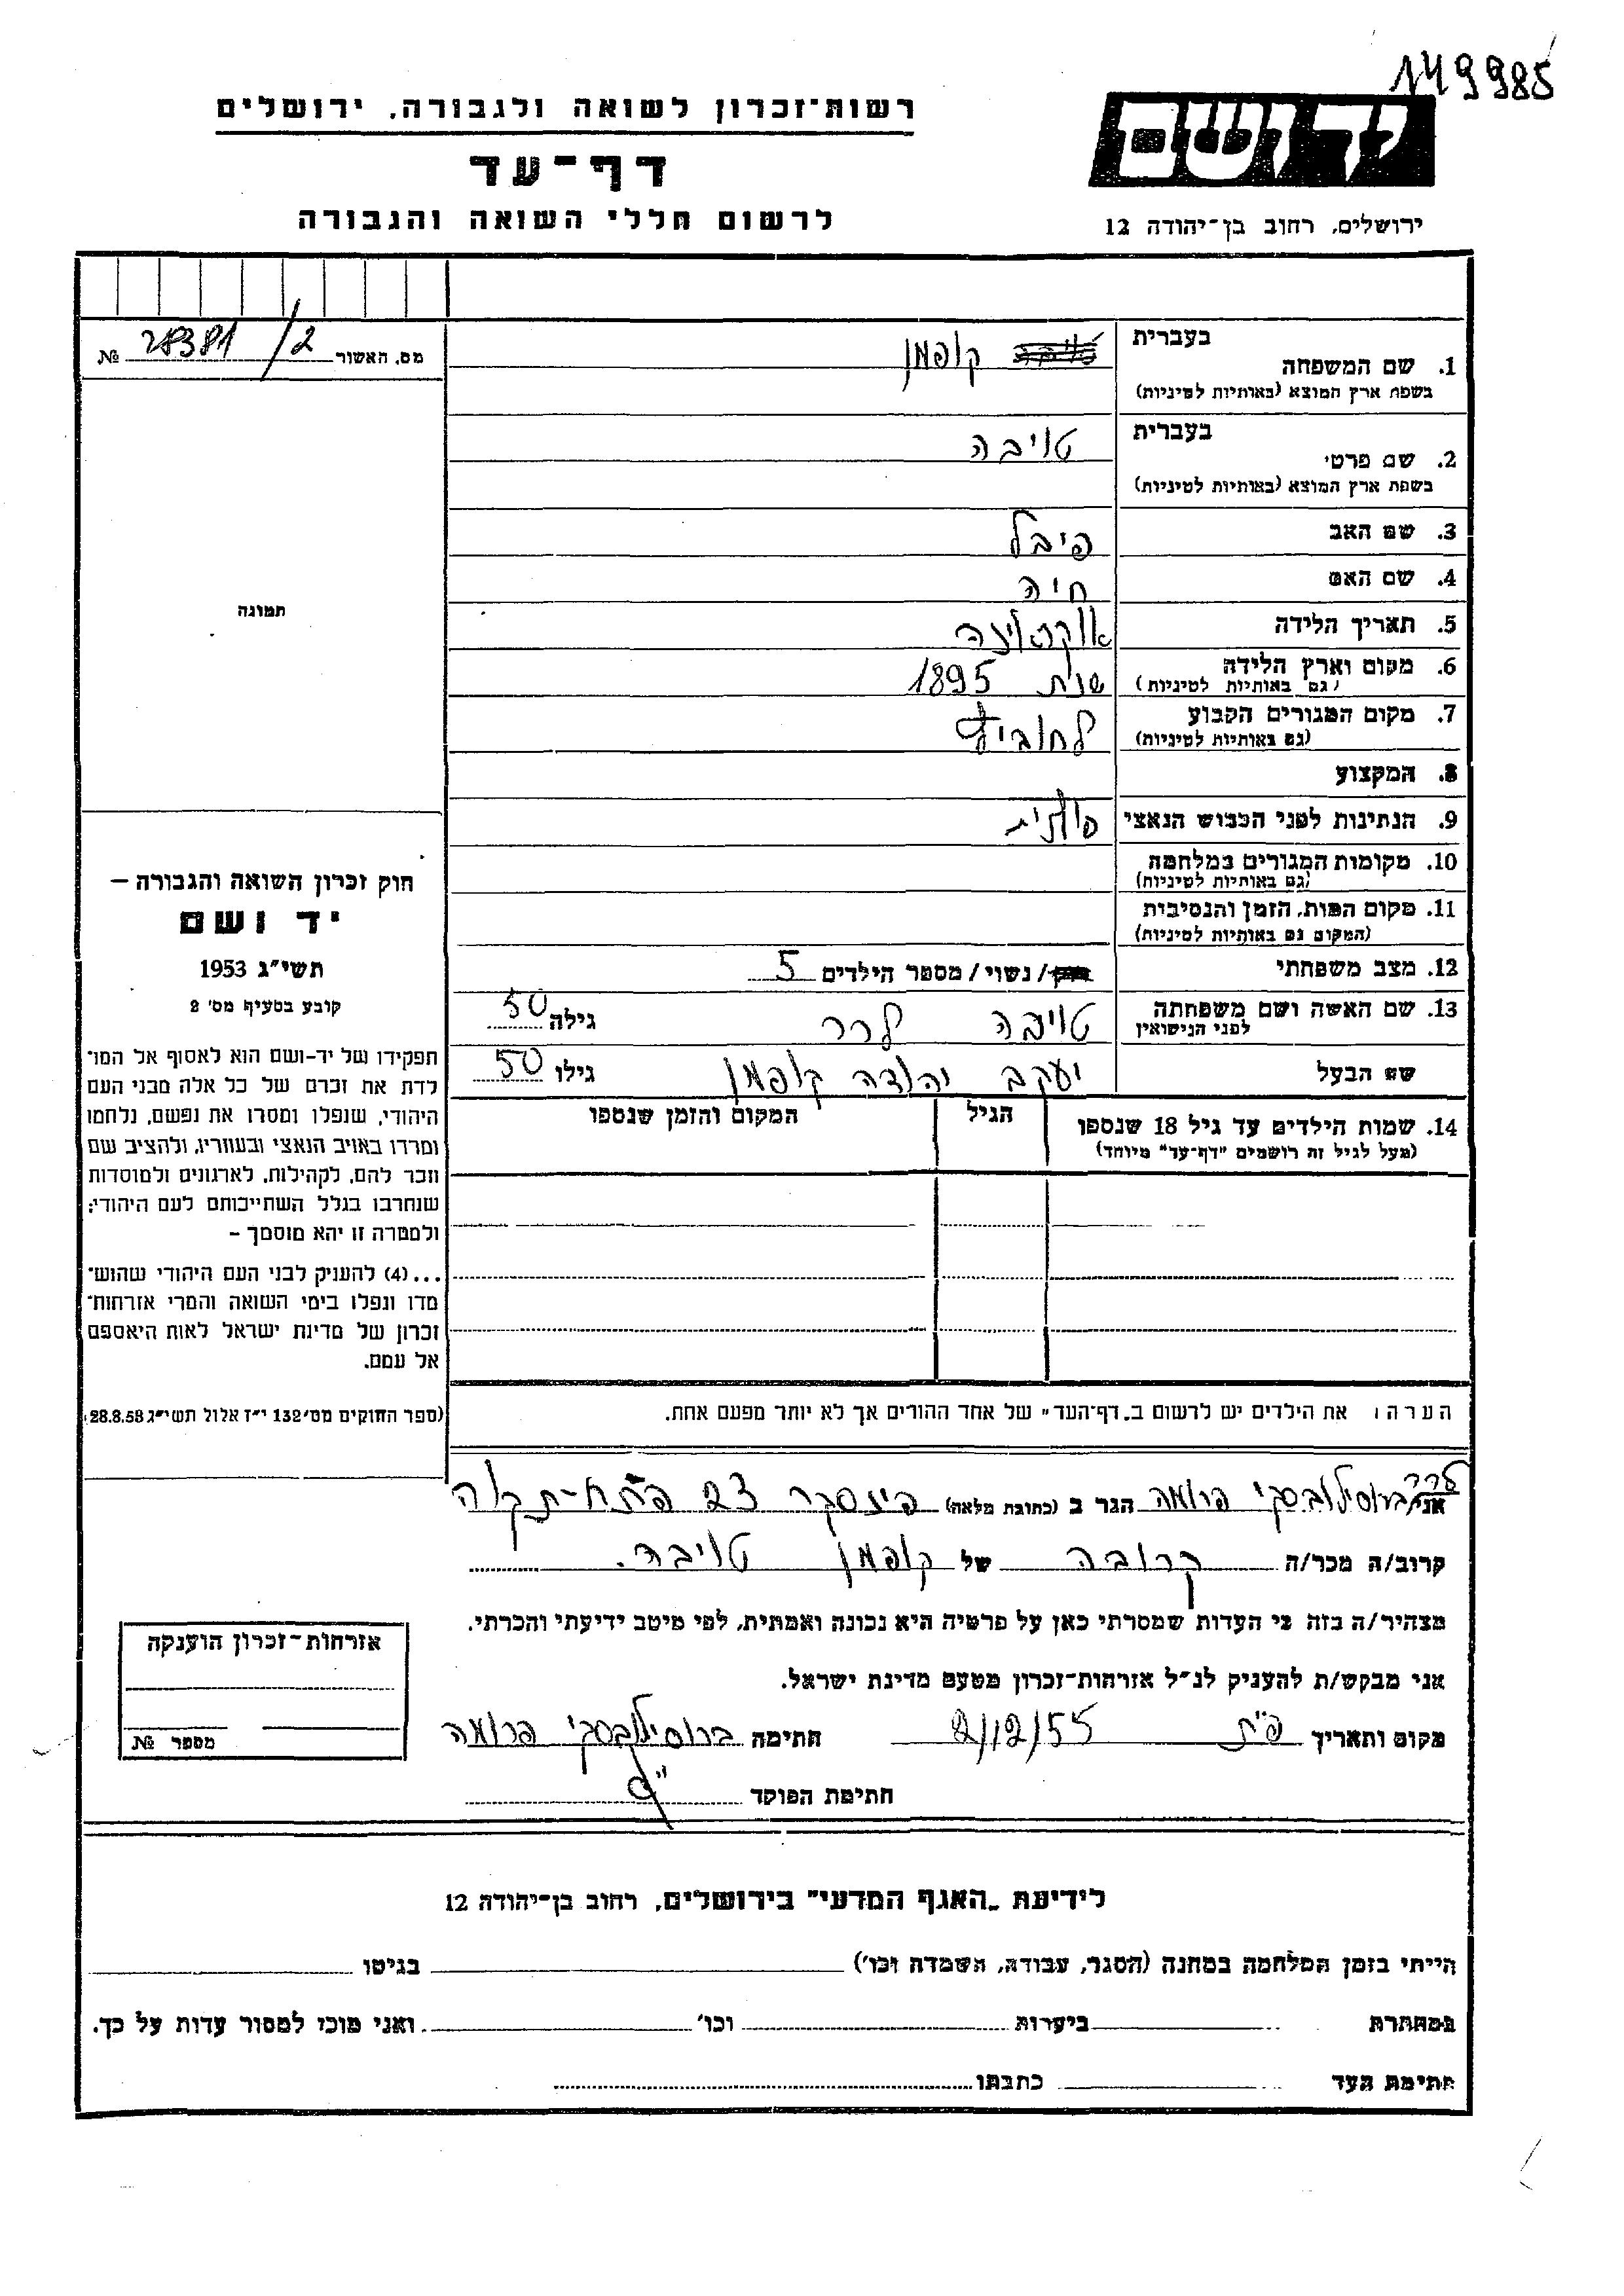 149985
רשות־זכרון לשואה ולגבורה, ירושלים
יד ושם
דף־עד
לרשום חללי השואה והגבורה
ירושלים, רחוב בן־יהודה 12
מס. האשור 28381/2 №
בעברית
1. שם המשפחה קופמן
בשפת ארץ המוצא (באותיות לטיניות)
בעברית
2. שם פרטי טויבה
בשפת ארץ המוצא (באותיות לטיניות)
3. שם האב פיבל
4. שם האם חיה
תמונה
5. תאריך הלידה אוקראינה
6. מקום וארץ הלידה שנת 1895
(גם באותיות לטיניות)
7. מקום המגורים הקבוע
(גם באותיות לטיניות)
8. המקצוע
9. הנתינות לפני הכבוש הנאצי פולנית
10. מקומות המגורים במלחמה
(גם באותיות לטיניות)
11. מקום המות, הזמן והנסיבות
(המקום גם באותיות לטיניות)
12. מצב משפחתי רוק/ נשוי/ מספר הילדים 5
13. שם האשה ושם משפחתה טויבה לרר גילה 50
לפני הנישואין
שם הבעל יעקב יהודה קופמן גילו 50
14. שמות הילדים עד גיל 18 שנספו הגיל המקום והזמן שנספו
(מעל לגיל זה רושמים "דף־עד" מיוחד)
חוק זכרון השואה והגבורה –
יד ושם
תשי״ג 1953
קובע בסעיף מס' 2
תפקידו של יד־ושם הוא לאסוף אל המו־
לדת את זכרם של כל אלה מבני העם
היהודי, שנפלו ומסרו את נפשם, נלחמו
ומרדו באויב הנאצי ובעוזריו, ולהציב שם
וזכר להם, לקהילות, לארגונים ולמוסדות
שנחרבו בגלל השתייכותם לעם היהודי;
ולמטרה זו יהא מוסמך –
...(4) להעניק לבני העם היהודי שהוש־
מדו ונפלו בימי השואה והמרי אזרחות־
זכרון של מדינת ישראל לאות היאספם
אל עמם.
(ספר החוקים מס' 132 י״ז אלול תשי״ג 28.8.53)
הערה: את הילדים יש לרשום ב„דף־העד" של אחד ההורים אך לא יותר מפעם אחת.
לרר
אני ברוסילובסקי פרומה הגר ב (כתובת מלאה) פינסקר 23 פתח־תקוה
קרוב/ה מכר/ה קרובה של קופמן טויבה.
מצהיר/ה בזה כי העדות שמסרתי כאן על פרטיה היא נכונה ואמתית, לפי מיטב ידיעתי והכרתי.
אני מבקש/ת להעניק לנ״ל אזרחות־זכרון מטעם מדינת ישראל.
מקום ותאריך פ״ת 2/12/55 חתימה ברוסילובסקי פרומה
חתימת הפוקד
אזרחות־זכרון הוענקה
מספר №
לידיעת „האגף המדעי" בירושלים, רחוב בן־יהודה 12
הייתי בזמן המלחמה במחנה (הסגר, עבודה, השמדה וכו') בגיטו
במחתרת ביערות וכו' ואני מוכן למסור עדות על כך.
חתימת העד כתבתו